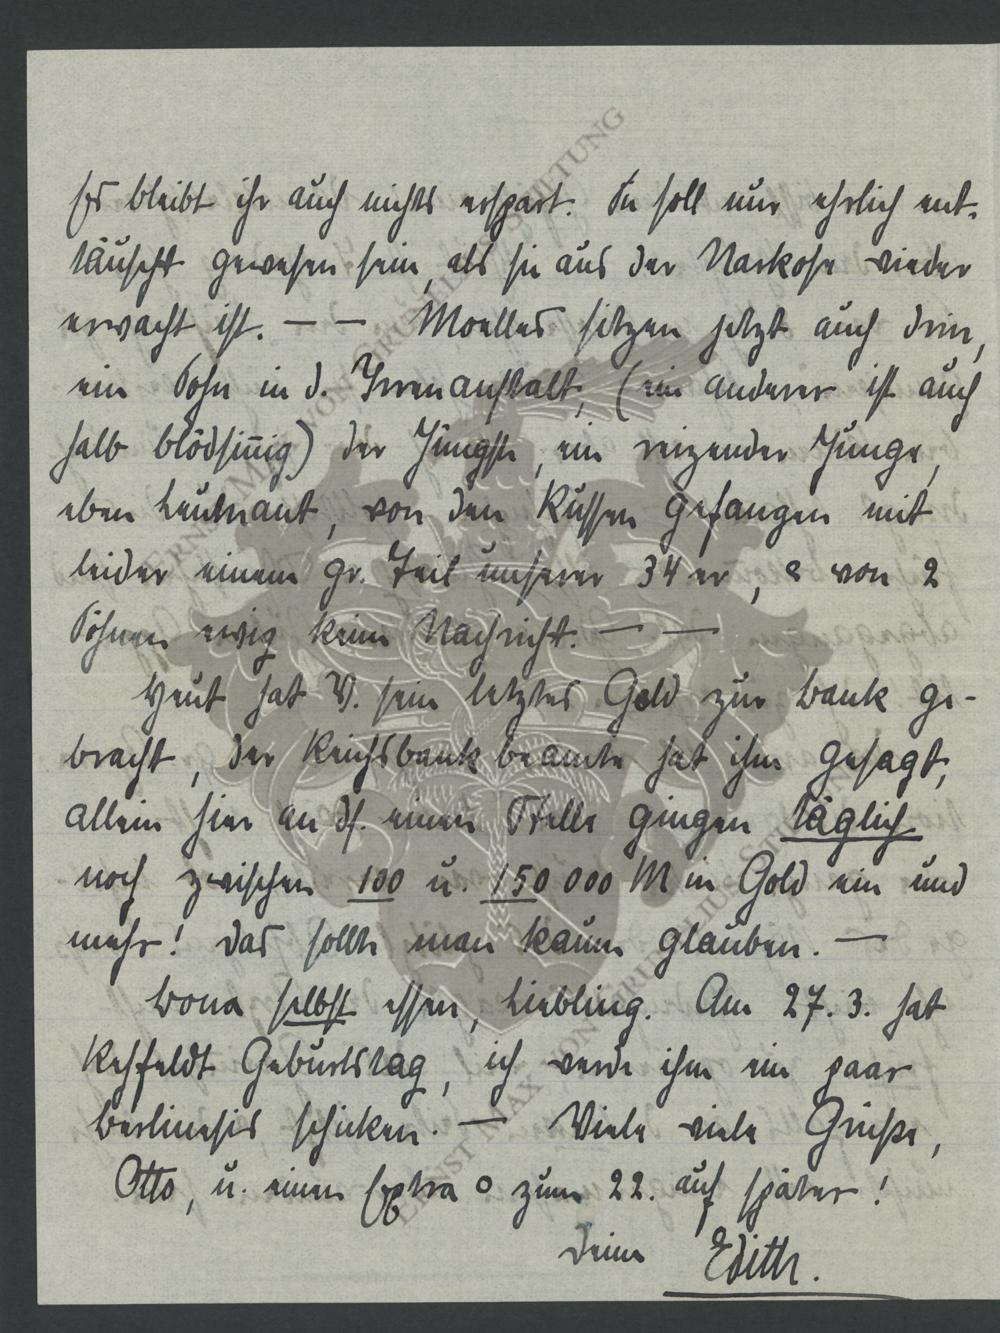 Es bleibt ihr auch nichts erspart. Sie soll nur ehrlich ent-
täuscht gewesen sein, als sie aus der Narkose wieder
erwacht ist. — — Moellers sitzen jetzt auch drin,
ein Sohn in d. Irrenanstalt, (ein anderer ist auch
halb blödsin̄ig) der Jüngste, ein reizender Junge,
eben Leutnant, von den Russen gefangen mit
leider einem gr. Teil unserer 34 er, & von 2
Söhnen ewig keine Nachricht. — —
Heut hat V. sein letztes Gold zur Bank ge-
bracht, der Reichsbankbeamte hat ihm gesagt,
allein hier an ds. einen Stelle gingen täglich
noch zwischen 100 u. 150 000 M in Gold ein und
mehr! Das sollte man kaum glauben. —
Bona selbst essen, Liebling. Am 27. 3. hat
Rehfeldt Geburtstag, ich werde ihm ein paar
schicken. — Viele viele Grüße,
Otto, u. einen Extra o zum 22. auf später!
Deine Edith.
ERNST MAX VON GRUNELIUS-STIFTUNG
ERNST MAX VON GRUNELIUS-STIFTUNG